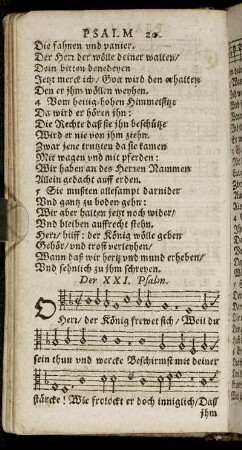 PSALM 20.
Die fahnen vnd panier.
Der Herr der wölle deiner walten/
Dein bitten benedeyen
Jetzt merck ich/ Gott wird den erhalten
Den er jhm wöllen weyhen.
4 Vom heilig-hohen Himmelsitze
Da wird er hören jhn:
Die Rechte daß sie jhn beschütze
Wird er nie von jhm ziehn.
Zwar jene trutzten da sie kamen
Mit wagen vnd mit pferden:
Wir haben an des Herren Nammen
Allein gedacht auff erden.
5 Sie mußten allesampt darnider
Vnd gantz zu boden gehn:
Wir aber halten jetzt noch wider/
Vnd bleiben auffrecht stehn.
Herr/ hilff: der König wölle geben
Gehör/ vnd trost verleyhen/
Wann daß wir hertz vnd mund erheben/
Vnd sehnlich zu jhm schreyen.
Der XXI. Psalm.
O Herr/ der König frewet sich/ Weil du
sein thun vnd wercke Beschirmst mit deiner
stärcke! Wie frolockt er doch inniglich/ Daß
jhm